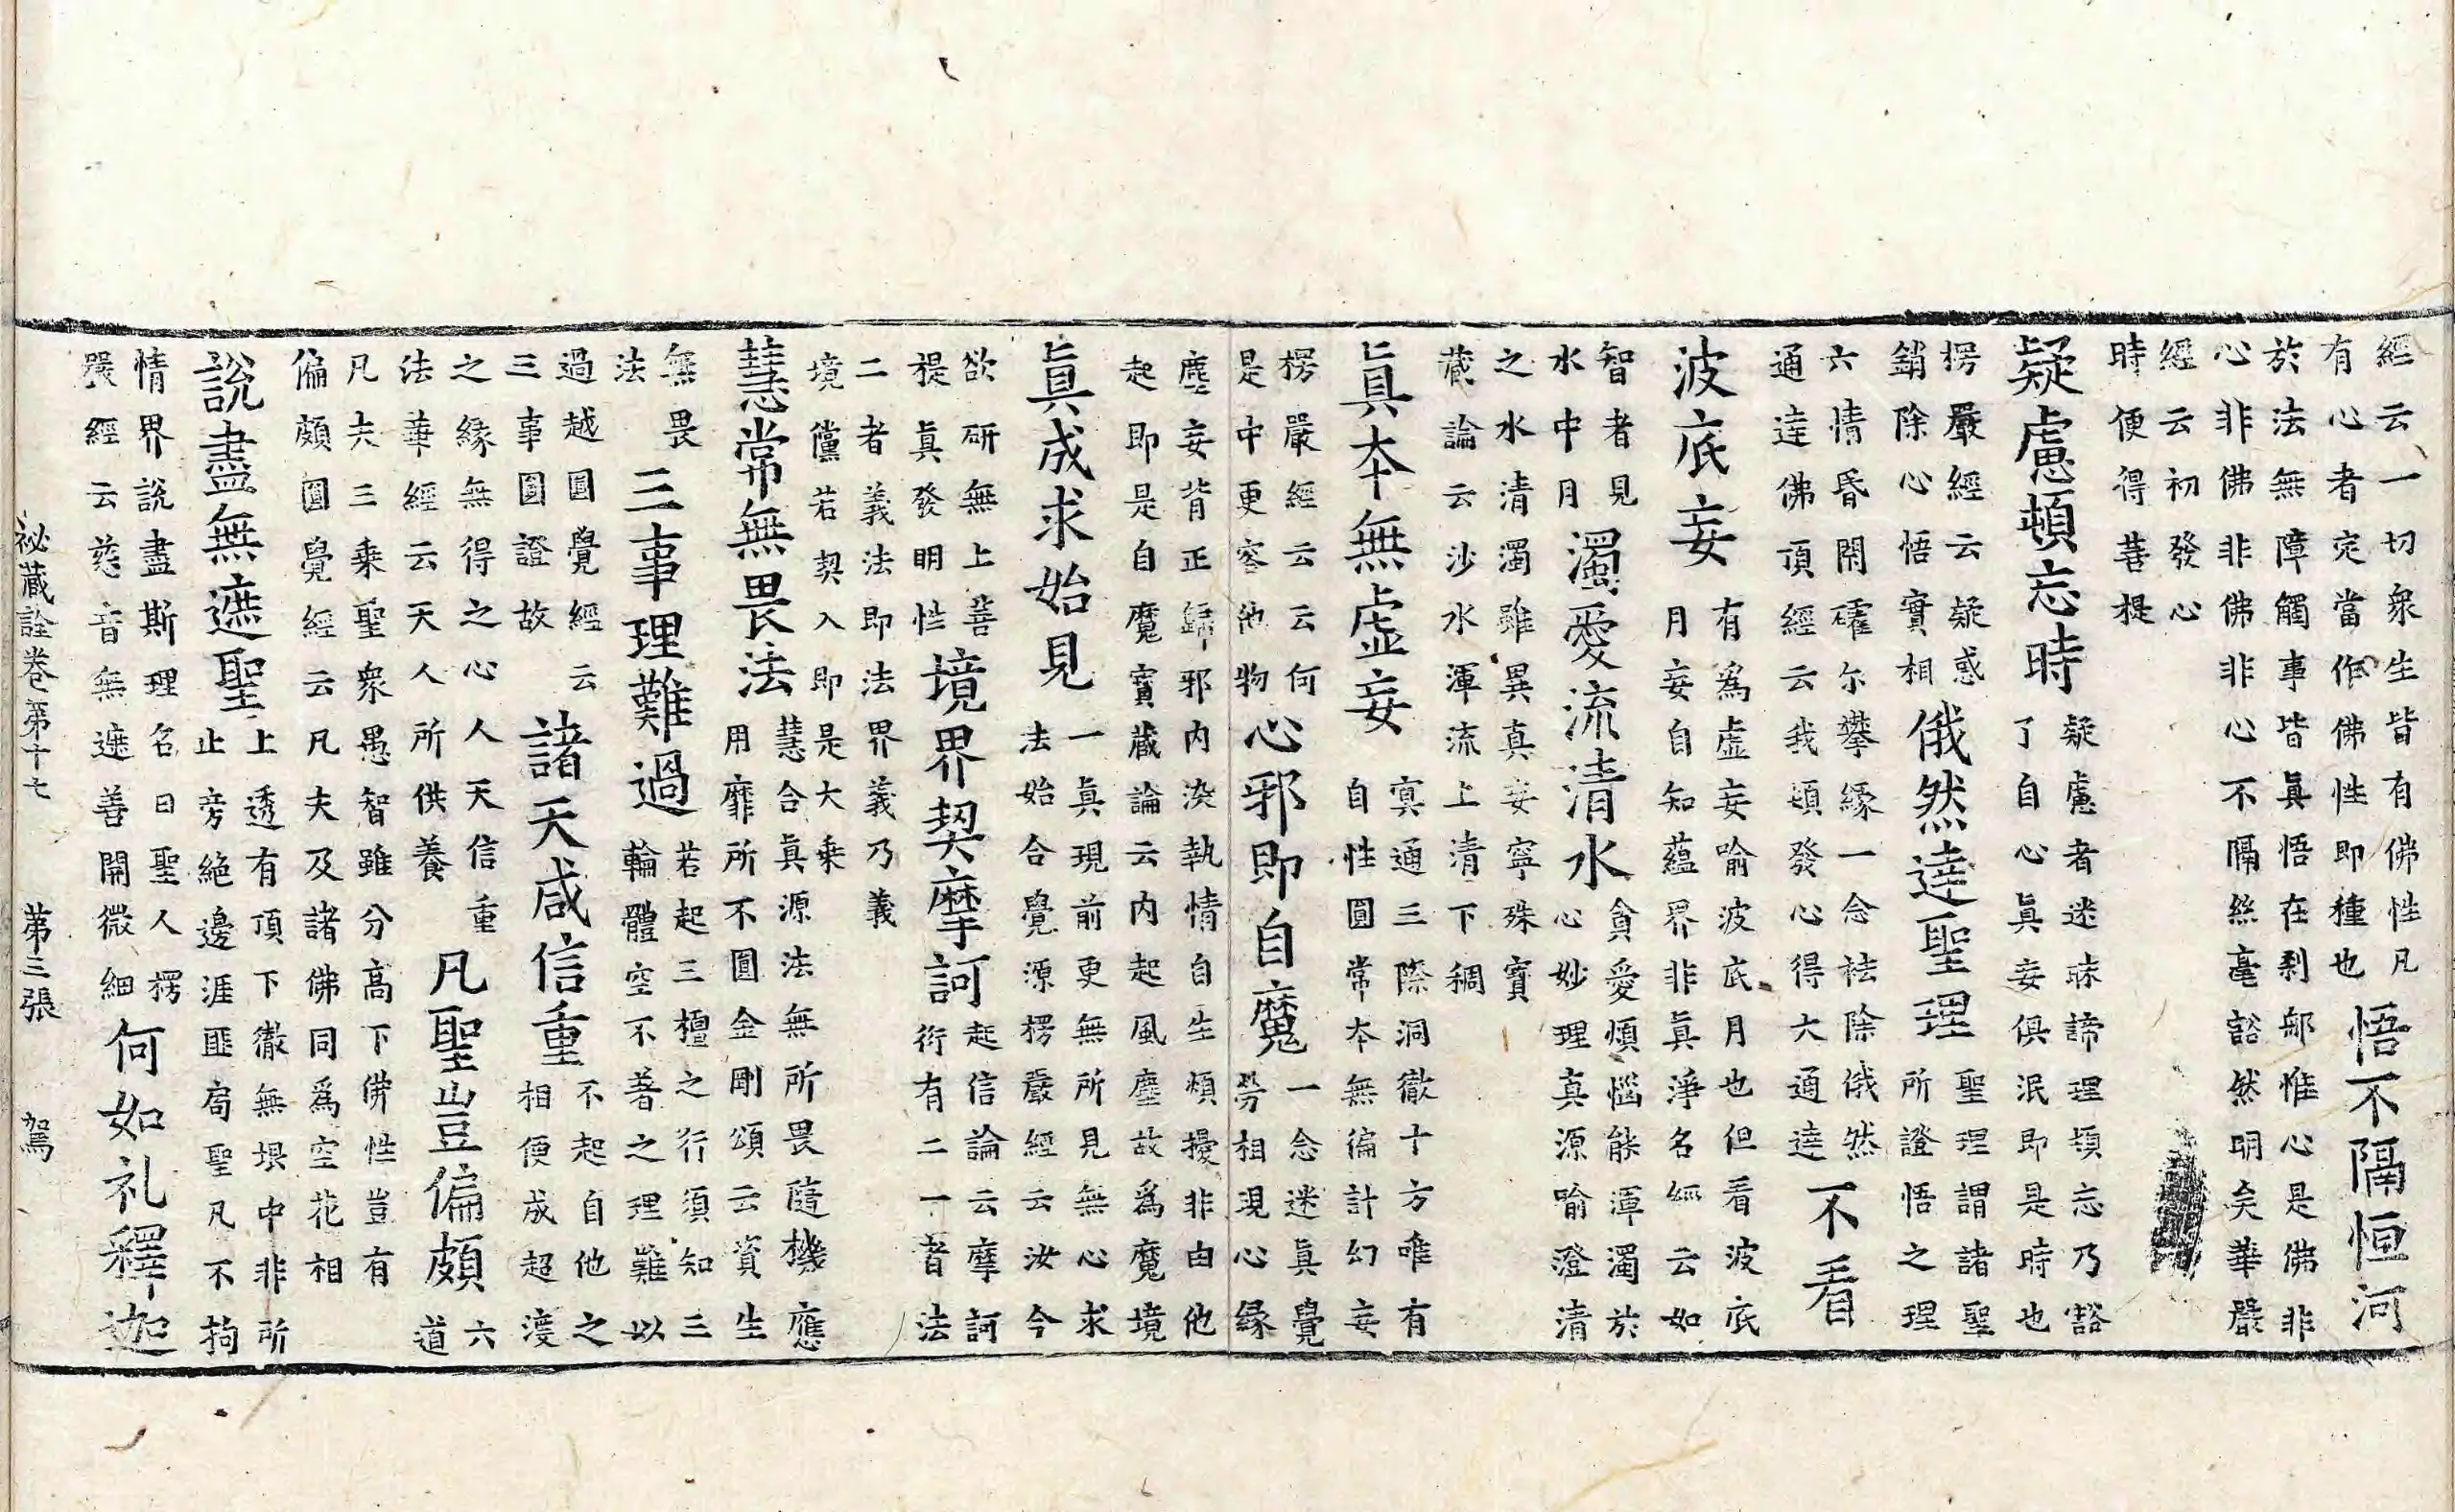 經云一切衆生皆有佛性凡
有心者定當作佛性即種也
悟不隔恒河
於法無障觸事皆眞悟在刹那惟心是佛非
心非佛非佛非心不隔絲毫豁然明矣華嚴
經云初發心
時便得菩提
疑慮頓忘時
疑慮者迷昧諦理頓忘乃豁
了自心眞妄俱泯即是時也
楞嚴經云疑惑
銷除心悟實相
俄然達聖理
聖理謂諸聖
所證悟之理
六情昏閉礭尔攀緣一念袪除俄然
通達佛頂經云我頓發心得大通達
不看
波底妄
有爲虛妄妄喻波底月也但看波底
月妄自知蘊界非眞淨名經云如
智者見
水中月
濁愛流清水
貪愛煩惱能渾濁於
心妙理真源喻澄清
之水清濁雖異真妄寧殊寳
藏論云沙水渾流上清下稠
眞本無虛妄
寞通三際洞徹十方唯有
自性圓常本無徧計幻妄
楞嚴經云云何
是中更容他物
心邪即自魔
一念迷眞覺
勞相現心緣
塵妄背正歸邪内染執情自生煩擾非由他
起即是自魔寳藏論云内起風塵故爲魔境
眞成求始見
一眞現前更無所見無心求
法始合覺源楞嚴經云汝今
欲研無上菩
提眞發明性
境界契摩訶
起信論云摩訶
衍有二一者法
二者義法即法界義乃義
境儻若契入即是大乘
慧常無畏法
慧合眞源法無所畏隨機應
用靡所不圓金剛頌云資生
無畏
法
三事理難過
若起三檀之行須知三
輪體空不著之理難以
過越圓覺經云
三事圓證故
諸天咸信重
不起自他之
相便成超渡
之緣無得之心人天信重
法華經云天人所供養
凡聖豈偏頗
六
道
凡夫三乘聖衆愚智雖分高下佛性豈有
偏頗圓覺經云凡夫及諸佛同爲空花相
說盡無遮聖
上透有頂下徹無垠中非所
止旁絶邊涯匪局聖凡不拘
情界說盡斯理名曰聖人楞
嚴經云慈音無遮善開微細
何如礼釋迦
祕藏詮卷第十七 第三張 駕